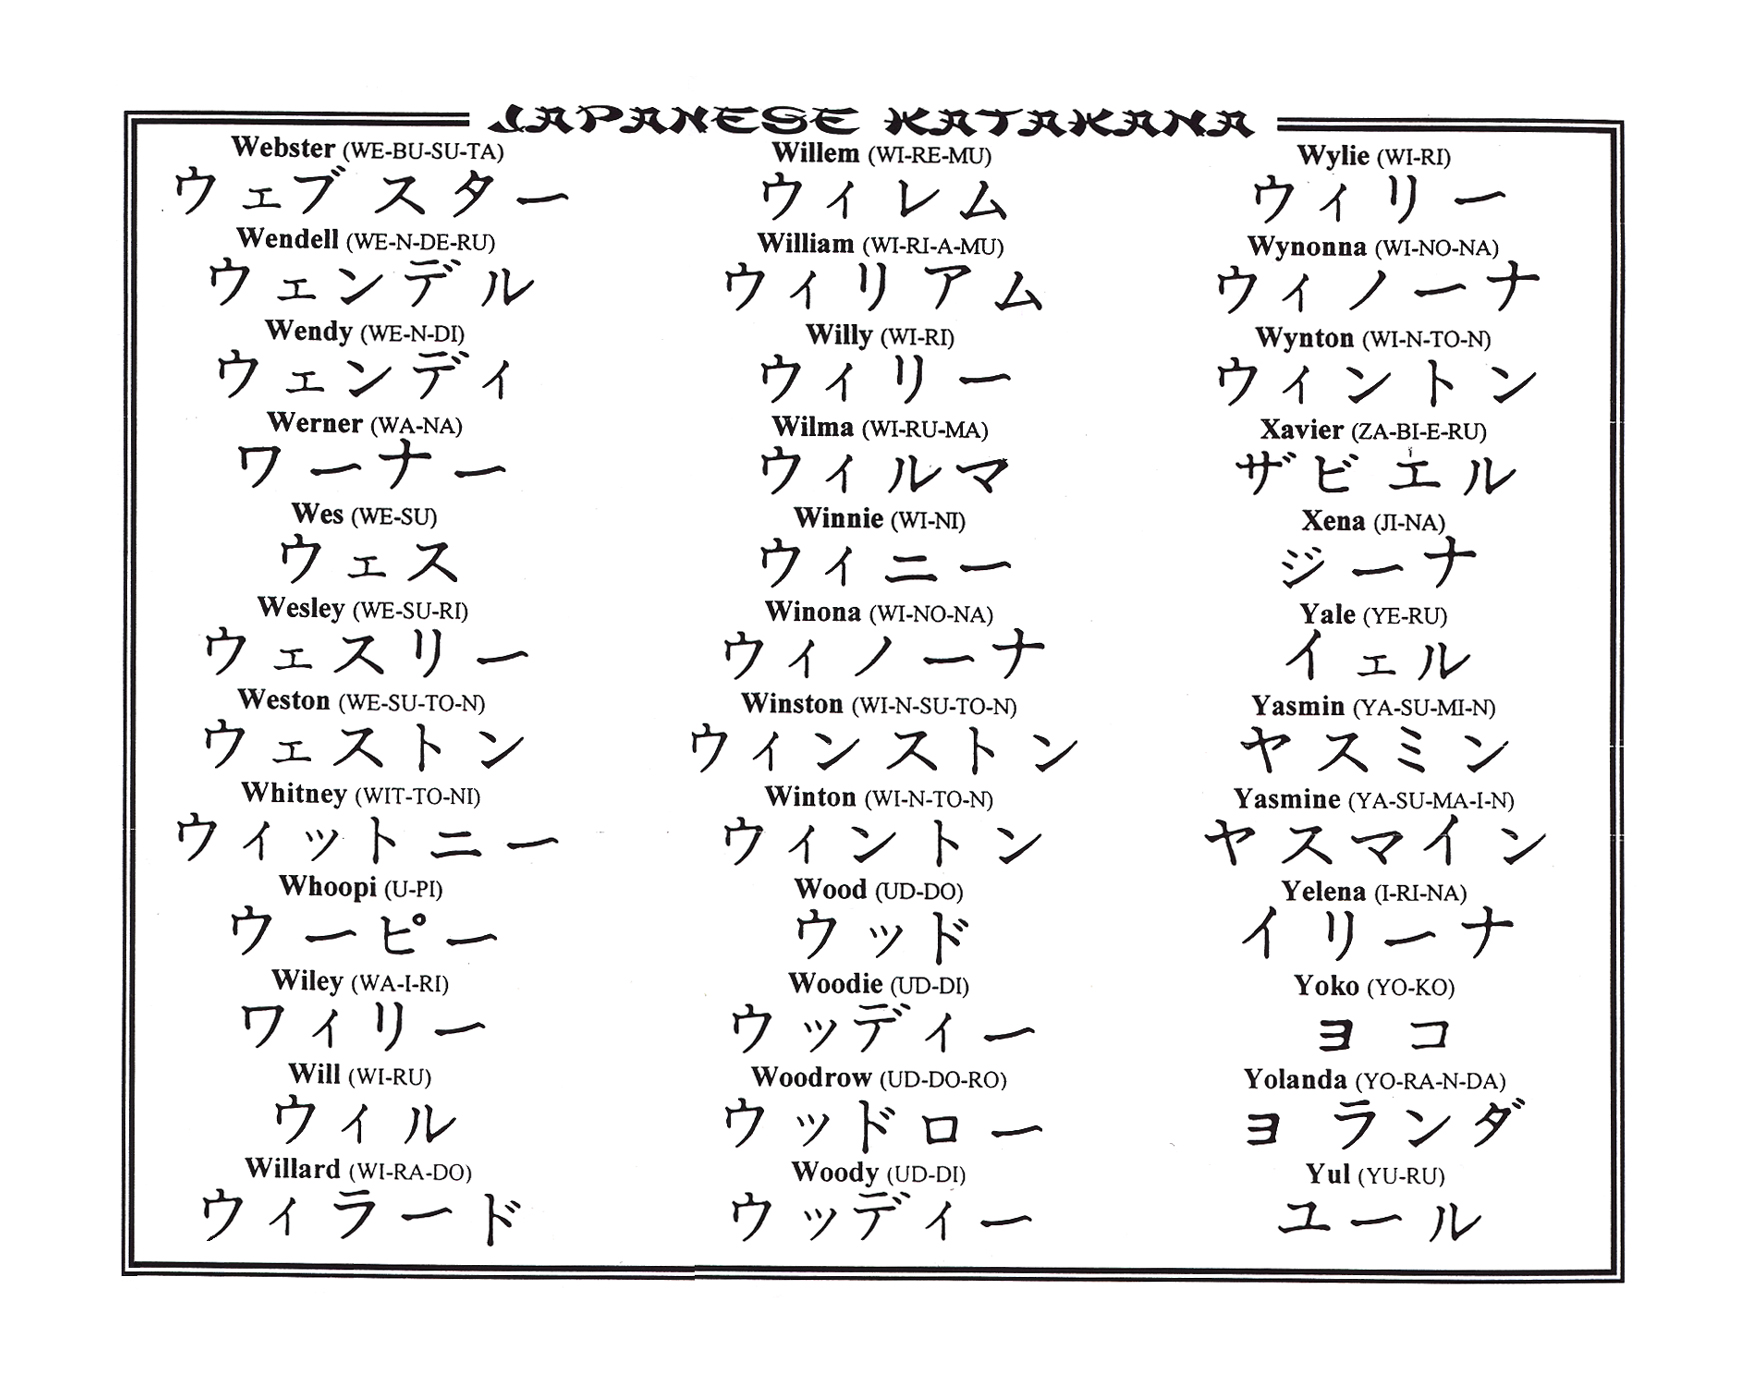 JAPANESE KATAKANA
Webster (WE-BU-SU-TA)
ウェブスター
Wendell (WE-N-DE-RU)
ウェンデル
Wendy (WE-N-DI)
ウェンディ
Werner (WA-NA)
ワーナー
Wes (WE-SU)
ウェス
Wesley (WE-SU-RI)
ウェスリー
Weston (WE-SU-TO-N)
ウェストン
Whitney (WIT-TO-NI)
ウィットニー
Whoopi (U-PI)
ウーピー
Wiley (WA-I-RI)
ワィリー
Will (WI-RU)
ウィル
Willard (WI-RA-DO)
ウィラード
Willem (WI-RE-MU)
ウィレム
William (WI-RI-A-MU)
ウィリアム
Willy (WI-RI)
ウィリー
Wilma (WI-RU-MA)
ウィルマ
Winnie (WI-NI)
ウィニー
Winona (WI-NO-NA)
ウィノーナ
Winston (WI-N-SU-TO-N)
ウィンストン
Winton (WI-N-TO-N)
ウィントン
Wood (UD-DO)
ウッド
Woodie (UD-DI)
ウッディー
Woodrow (UD-DO-RO)
ウッドロー
Woody (UD-DI)
ウッディー
Wylie (WI-RI)
ウィリー
Wynonna (WI-NO-NA)
ウィノーナ
Wynton (WI-N-TO-N)
ウィントン
Xavier (ZA-BI-E-RU)
ザビエル
Xena (JI-NA)
ジーナ
Yale (YE-RU)
イェル
Yasmin (YA-SU-MI-N)
ヤスミン
Yasmine (YA-SU-MA-I-N)
ヤスマイン
Yelena (I-RI-NA)
イリーナ
Yoko (YO-KO)
ヨコ
Yolanda (YO-RA-N-DA)
ヨランダ
Yul (YU-RU)
ユール